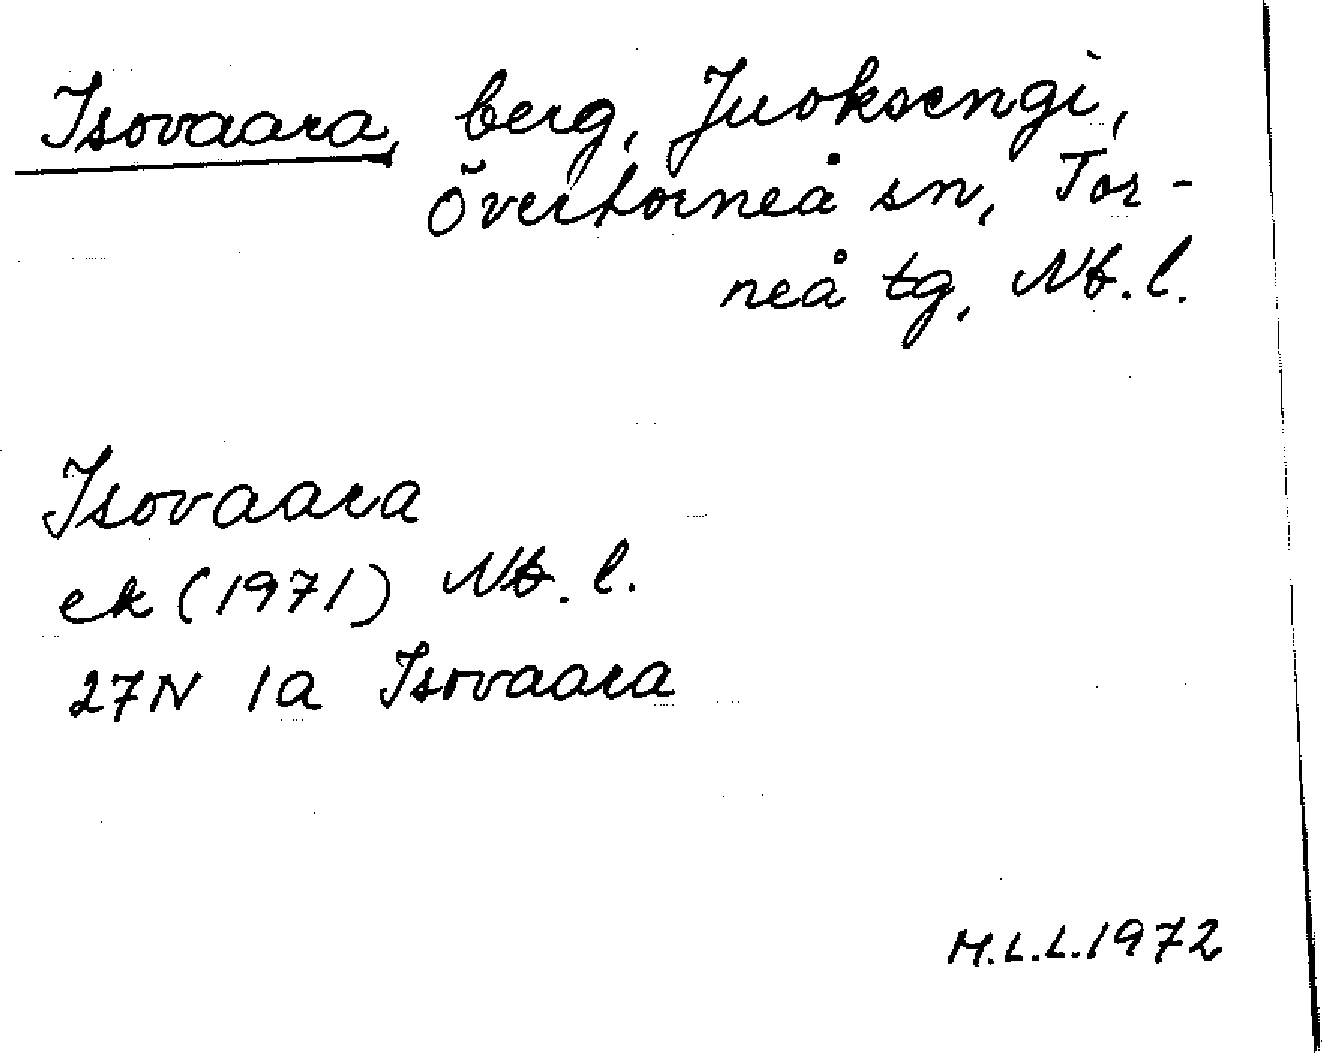 Isovaara, berg, Juoksengi,
Övertorneå sn, Tor-
neå tg, Nb. l.
Isovaara
ek (1971) Nb. l.
27N 1a Isovaara
M.L.L. 1972